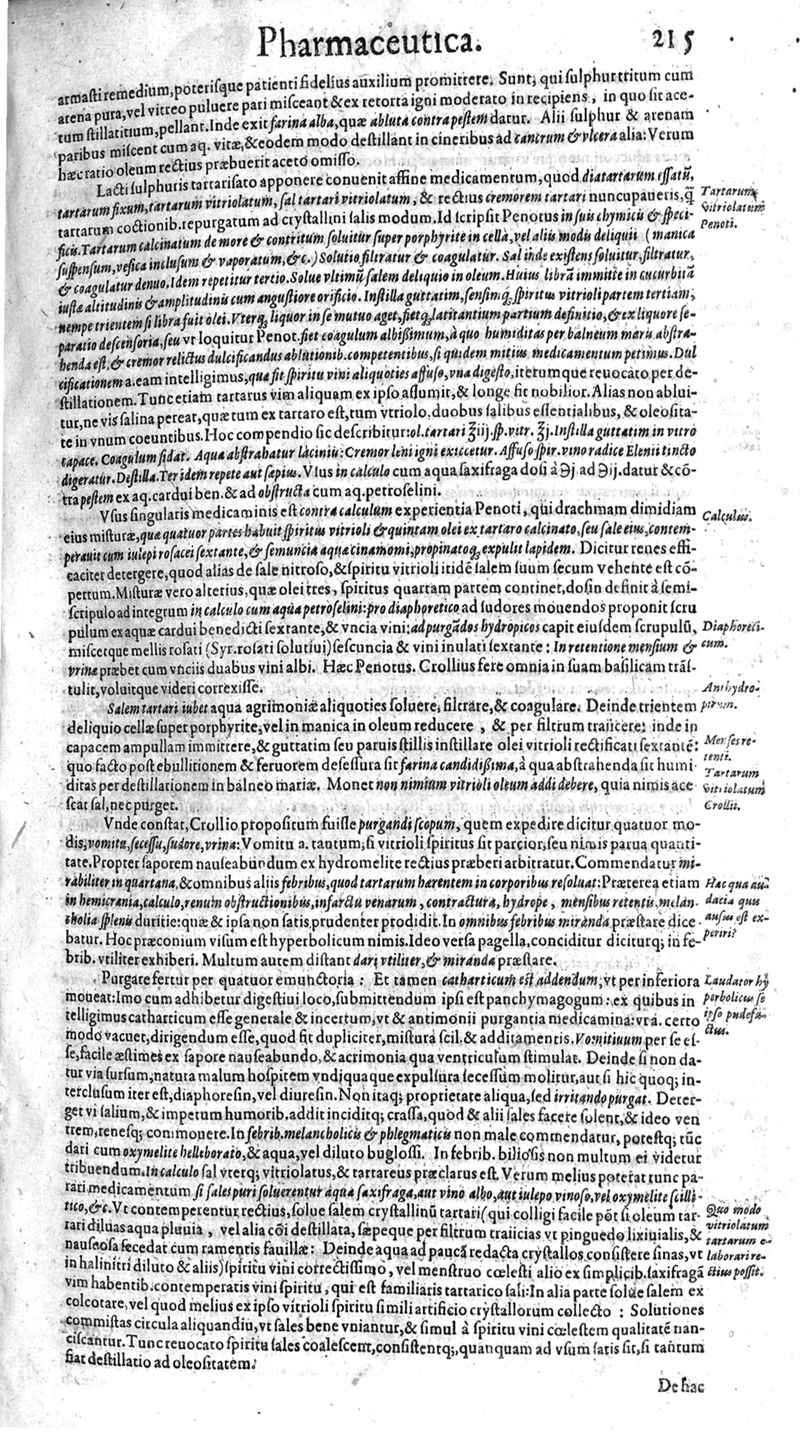 Pharmaceutica. 215
armasti remedium, poterisque patienti fidelius auxilium promittere. Sunt, qui sulphur tritum cum
arena pura, vel vitreo puluere pari misceant & ex retorta igni moderato in recipiens, in quo sit ace-
tum stillatitium, pellant. Inde exit farina alba, quæ abluta contra pestem datur. Alii sulphur & arenam
paribus miscent cum aq. vitæ, & eodem modo destillant in cineribus ad cancrum & vlcera alia: Verum
hæc ratio oleum rectius præbuerit aceto omisso.
Lacti sulphuris tartarisato apponere conuenit affine medicamentum, quod diatartarum essatũ,
tartarum fixum, tartarum vitriolatum, sal tartari vitriolatum, & rectius cremorem tartari nuncupaueris, q̃
tartarum coctionib. repurgatum ad crystallini salis modum. Id scripsit Penotus in suis chymicis & speci-
ficis. Tartarum calcinatum de more & contritum soluitur super porphyrite in cella, vel aliis modis deliquii (manica
suspensum, vesica inclusum & vaporatum, &c.) Solutio filtratur & coagulatur. Sal inde existens soluitur, filtratur,
& coagulatur denuo. Idem repetitur tertio. Solue vltimũ salem deliquio in oleum. Huius librã immitte in cucurbitã
iustæ altitudinis & amplitudinis cum angustiore orificio. Instilla guttatim, sensimq; spiritus vitrioli partem tertiam,
nempe trientem si libra fuit olei. Vterq; liquor in se mutuo aget, fietq; latitantium partium definitio, & ex liquore se-
paratio descensoria, seu vt loquitur Penot. fiet coagulum albißimum, à quo humiditas per balneum maris abstra-
henda est, & cremor relictus dulcificandus ablutionib. competentibus, si quidem mitius medicamentum petimus. Dul
cificationem a. eam intelligimus, qua fit spiritu vini aliquoties affuso, vna digesto, iterumque reuocato per de-
stillationem. Tunc etiam tartarus vim aliquam ex ipso assumit, & longe fit nobilior. Alias non ablui-
tur, ne vis salina pereat, quæ tum ex tartaro est, tum vitriolo, duobus salibus essentialibus, & oleosita-
te in vnum coeuntibus. Hoc compendio sic describitur: ol. tartari ℥iij. sp. vitr. ℥j. Instilla guttatim in vitro
capace. Coagulum fidat. Aqua abstrahatur laciniis: Cremor leni igni exiccetur. Affuso spir. vino radice Elenii tincto
digeratur. Destilla. Ter idem repete aut sæpius. Vsus in calculo cum aqua saxifraga dosi à ℈j ad ℈ij. datur & cõ-
tra pestem ex aq. cardui ben. & ad obstructa cum aq. petroselini.
Vsus singularis medicaminis est contra calculum experientia Penoti, qui drachmam dimidiam
eius misturæ, quæ quatuor partes habuit spiritus vitrioli & quintam olei ex tartaro calcinato, seu sale eius, contem-
perauit cum iulepi rosacei sextante, & semuncia aquæ cinamomi, propinatoq; expulit lapidem. Dicitur renes effi-
caciter detergere, quod alias de sale nitroso, & spiritu vitrioli itidẽ salem suum secum vehente est cõ-
pertum. Misturæ vero alterius, quæ olei tres, spiritus quartam partem continet, dosin definit à semi-
scripulo ad integrum in calculo cum aqua petroselini: pro diaphoretico ad sudores mouendos proponit scru
pulum ex aquæ cardui benedicti sextante, & vncia vini: ad purgãdos hydropicos capit eiusdem scrupulũ,
miscetque mellis rosati (Syr. rosati solutiui) sescuncia & vini inulati sextante: In retentione mensium &
vrina præbet cum vnciis duabus vini albi. Hæc Penotus. Crollius fere omnia in suam basilicam trãs-
tulit, voluitque videri correxisse.
Salem tartari iubet aqua agrimoniæ aliquoties soluere, filtrare, & coagulare. Deinde trientem
deliquio cellæ super porphyrite, vel in manica in oleum reducere, & per filtrum traiicere: inde in
capacem ampullam immittere, & guttatim seu paruis stillis instillare olei vitrioli rectificati sextantẽ:
quo facto post ebullitionem & feruorem desessura sit farina candidißima, à qua abstrahenda sit humi
ditas per destillationem in balneo mariæ. Monet non nimium vitrioli oleum addi debere, quia nimis ace
scat sal, nec purget.
Vnde constat, Crollio propositum fuisse purgandi scopum, quem expedire dicitur quatuor mo-
dis, vomitu, secessu, sudore, vrina: Vomitu a. tantum, si vitrioli spiritus sit parcior, seu nimis parua quanti-
tate. Propter saporem nauseabundum ex hydromelite rectius præberi arbitratur. Commendatur mi-
rabiliter in quartana, & omnibus aliis febribus, quod tartarum hærentem in corporibus resoluat: Præterea etiam
in hemicrania, calculo, renum obstructionibus, infarctu venarum, contractura, hydrope, mensibus retentis, melan-
cholia splenis duritie: quæ & ipsa non satis prudenter prodidit. In omnibus febribus miranda præstare dice
batur. Hoc præconium visum est hyperbolicum nimis. Ideo versa pagella, conciditur diciturq; in fe-
brib. vtiliter exhiberi. Multum autem distant dari vtiliter, & miranda præstare.
Purgare fertur per quatuor emunctoria: Et tamen catharticum est addendum, vt per inferiora
moueat: Imo cum adhibetur digestiui loco, submittendum ipsi est panchymagogum: ex quibus in
telligimus catharticum esse generale & incertum, vt & antimonii purgantia medicamina: vt a. certo
modo vacuet, dirigendum esse, quod fit dupliciter, mistura scil. & additamentis. Vomitiuum per se es-
se, facile æstimes ex sapore nauseabundo, & acrimonia qua ventriculum stimulat. Deinde si non da-
tur via sursum, natura malum hospitem vndiquaque expulsura secessum molitur, aut si hic quoq; in-
terclusum iter est, diaphoresin, vel diuresin. Non itaq; proprietate aliqua, sed irritando purgat. Deter-
get vi salium, & impetum humorib. addit inciditq; crassa, quod & alii sales facere solent, & ideo ven
trem, renesq; commouere. In febrib. melancholicis & phlegmaticis non male commendatur, potestq; tũc
dari cum oxymelite helleborato, & aqua, vel diluto buglossi. In febrib. biliosis non multum ei videtur
tribuendum. In calculo sal vterq; vitriolatus, & tartareus præclarus est. Verum melius poterat tunc pa-
rari medicamentum si sales puri soluerentur aqua saxifraga, aut vino albo, aut iulepo vinoso, vel oxymelite scilli-
tico, &c. Vt contemperentur rectius, solue salem crystallinũ tartari (qui colligi facile põt si oleum tar-
rari diluas aqua pluuia, vel alia cõi destillata, sæpeque per filtrum traiicias vt pinguedo lixiuialis, &
nauseosa secedat cum ramentis fauillæ: Deinde aqua ad paucã redacta crystallos consistere sinas, vt
in halinitri diluto & aliis) spiritu vini correctissimo, vel menstruo cœlesti alio ex simplicib. saxifragã
vim habentib. contemperatis vini spiritu, qui est familiaris tartarico sali: In alia parte solue salem ex
colcotare, vel quod melius ex ipso vitrioli spiritu simili artificio crystallorum collecto: Solutiones
commistas circula aliquandiu, vt sales bene vniantur, & simul à spiritu vini cœlestem qualitatẽ nan-
ciscantur. Tunc reuocato spiritu sales coalescent, consistentq;, quanquam ad vsum satis sit, si tantum
fiat destillatio ad oleositatem.
De hac
Tartarum
vitriolatum
Penoti.
Calculus.
Diaphoreti-
cum.
Anthydro-
picum.
Menses re-
tenti.
Tartarum
vitriolatum
Crollii.
Hac qua au-
dacia quis
ausus est ex-
periri?
Laudator hy
perbolicus se
ipso pudefa-
ctus.
Quo modo
vitriolatum
tartarum e-
laborari re-
ctius possit.